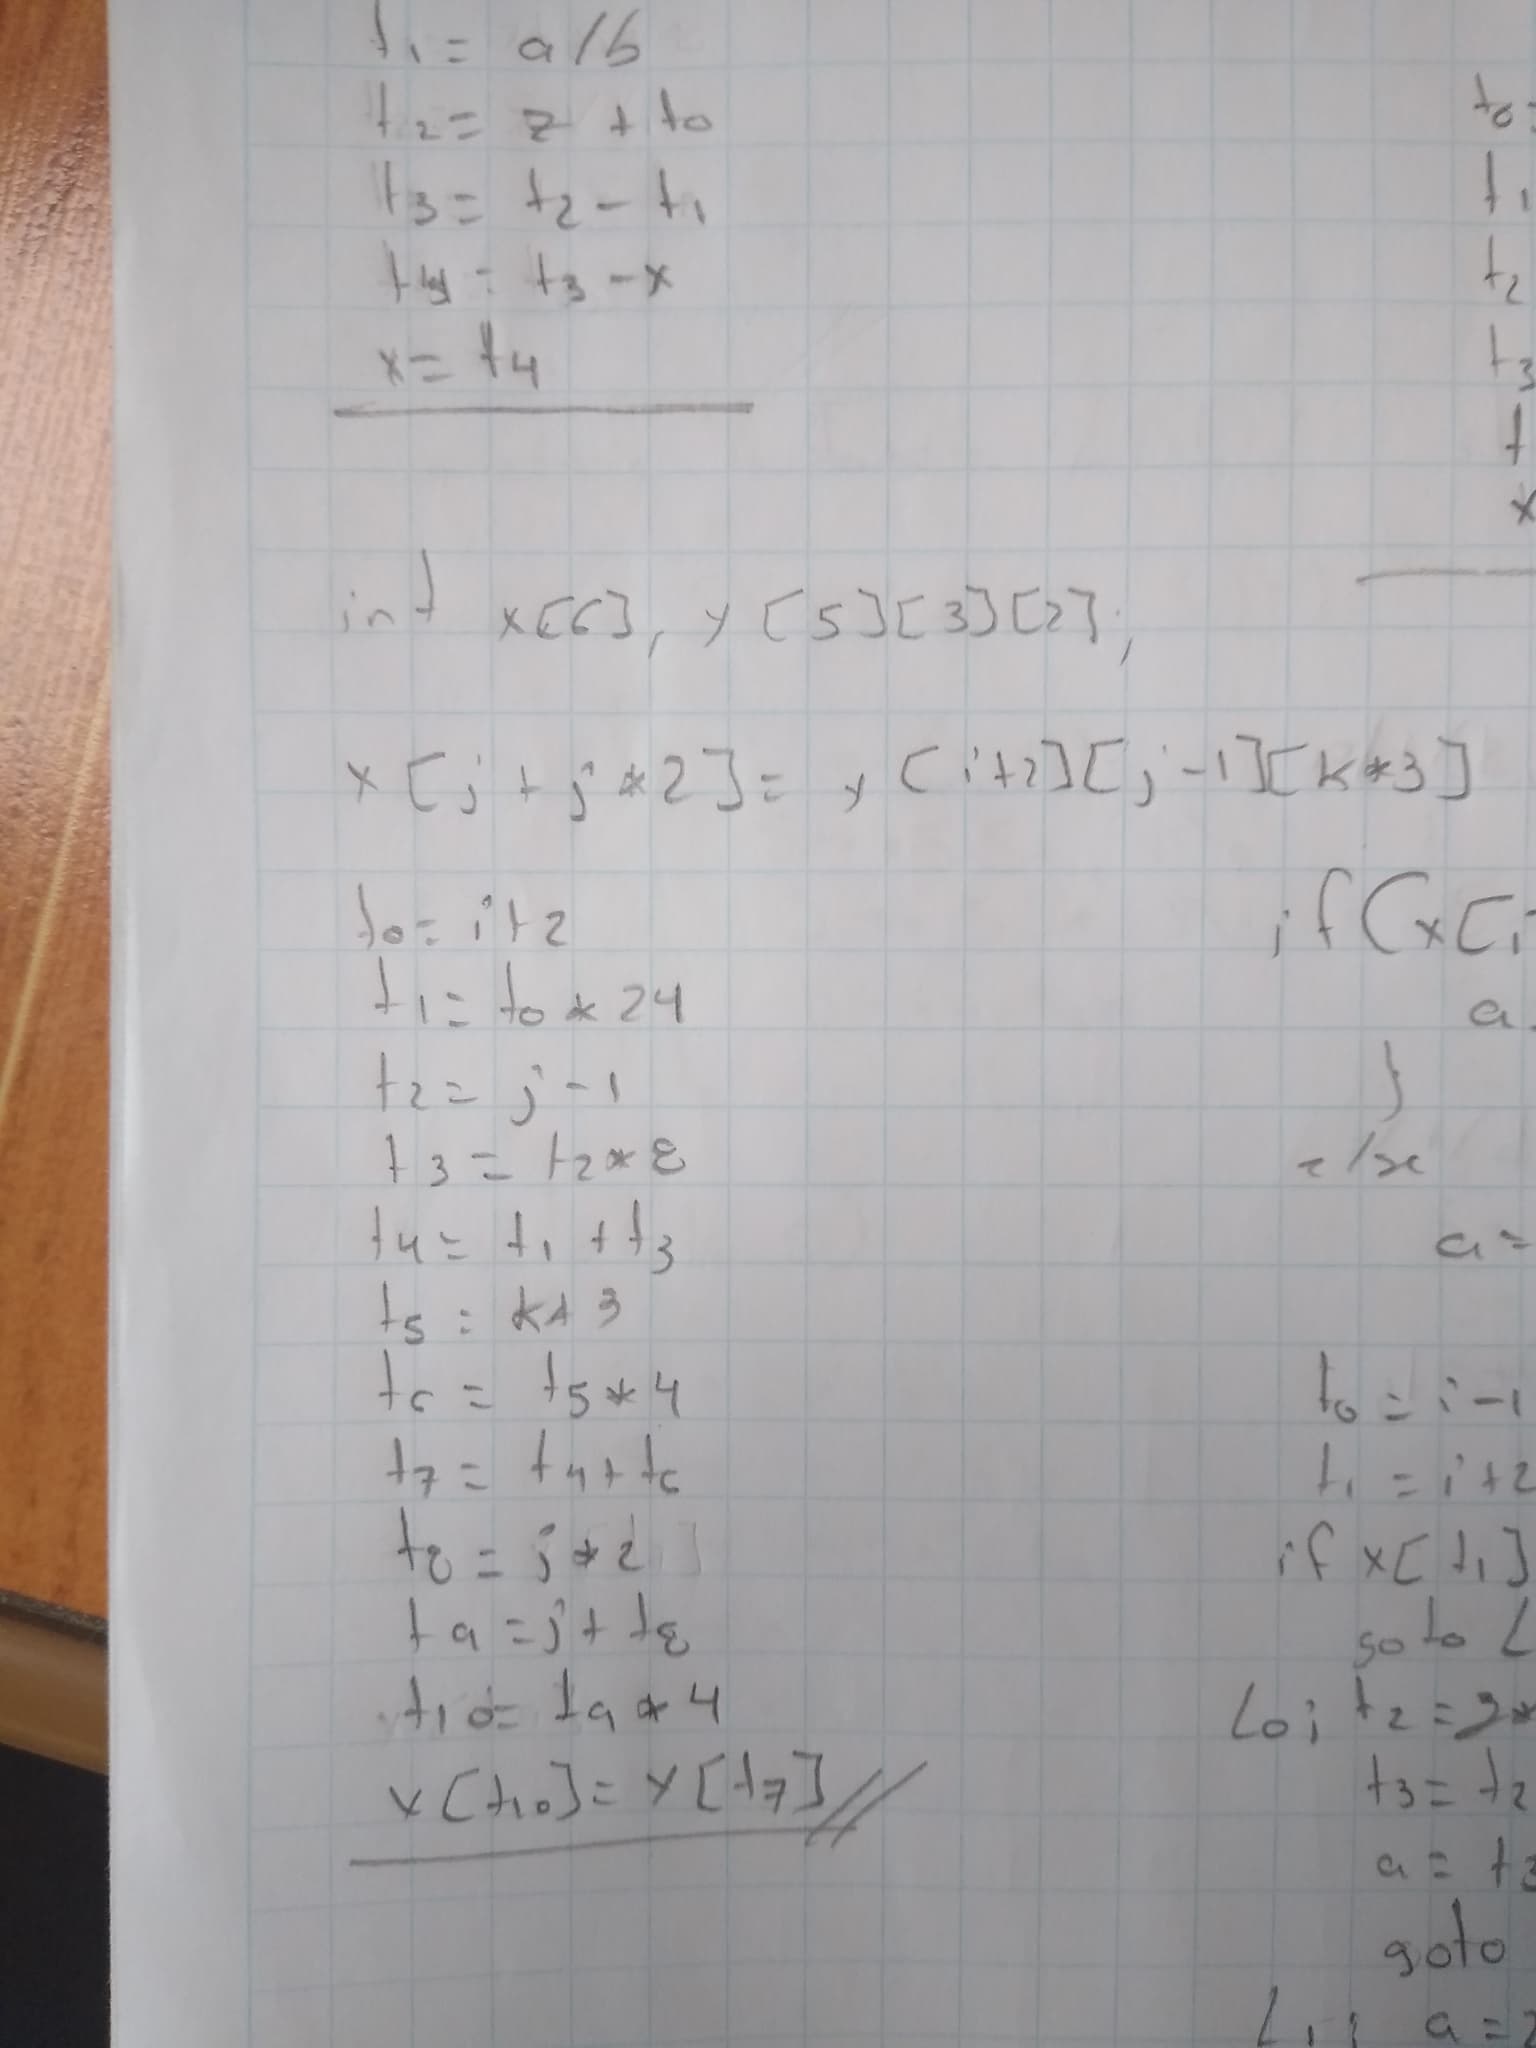 t1 = a/b
t2 = z + t0
t3 = t2 - t1
t4 = t3 - x
x = t4
int x[6], y[5][3][2];
x[j + j * 2] = y[i+2][j-1][k*3]
t0 = i+2
t1 = t0 * 24
t2 = j-1
t3 = t2 * 8
t4 = t1 + t3
t5 = k* 3
t6 = t5 * 4
t7 = t4 + t6
t8 = j * 2
t9 = j + t8
t10 = t9 * 4
x[t10] = y[t7]
t0 =
t1
t2
t3
t
x
if (x[i
a
}
else
a =
t0 = i-1
t1 = i+2
if x[t1]
goto L
L0: t2 = 3*
t3 = t2
a = t3
goto
L1: a = 2